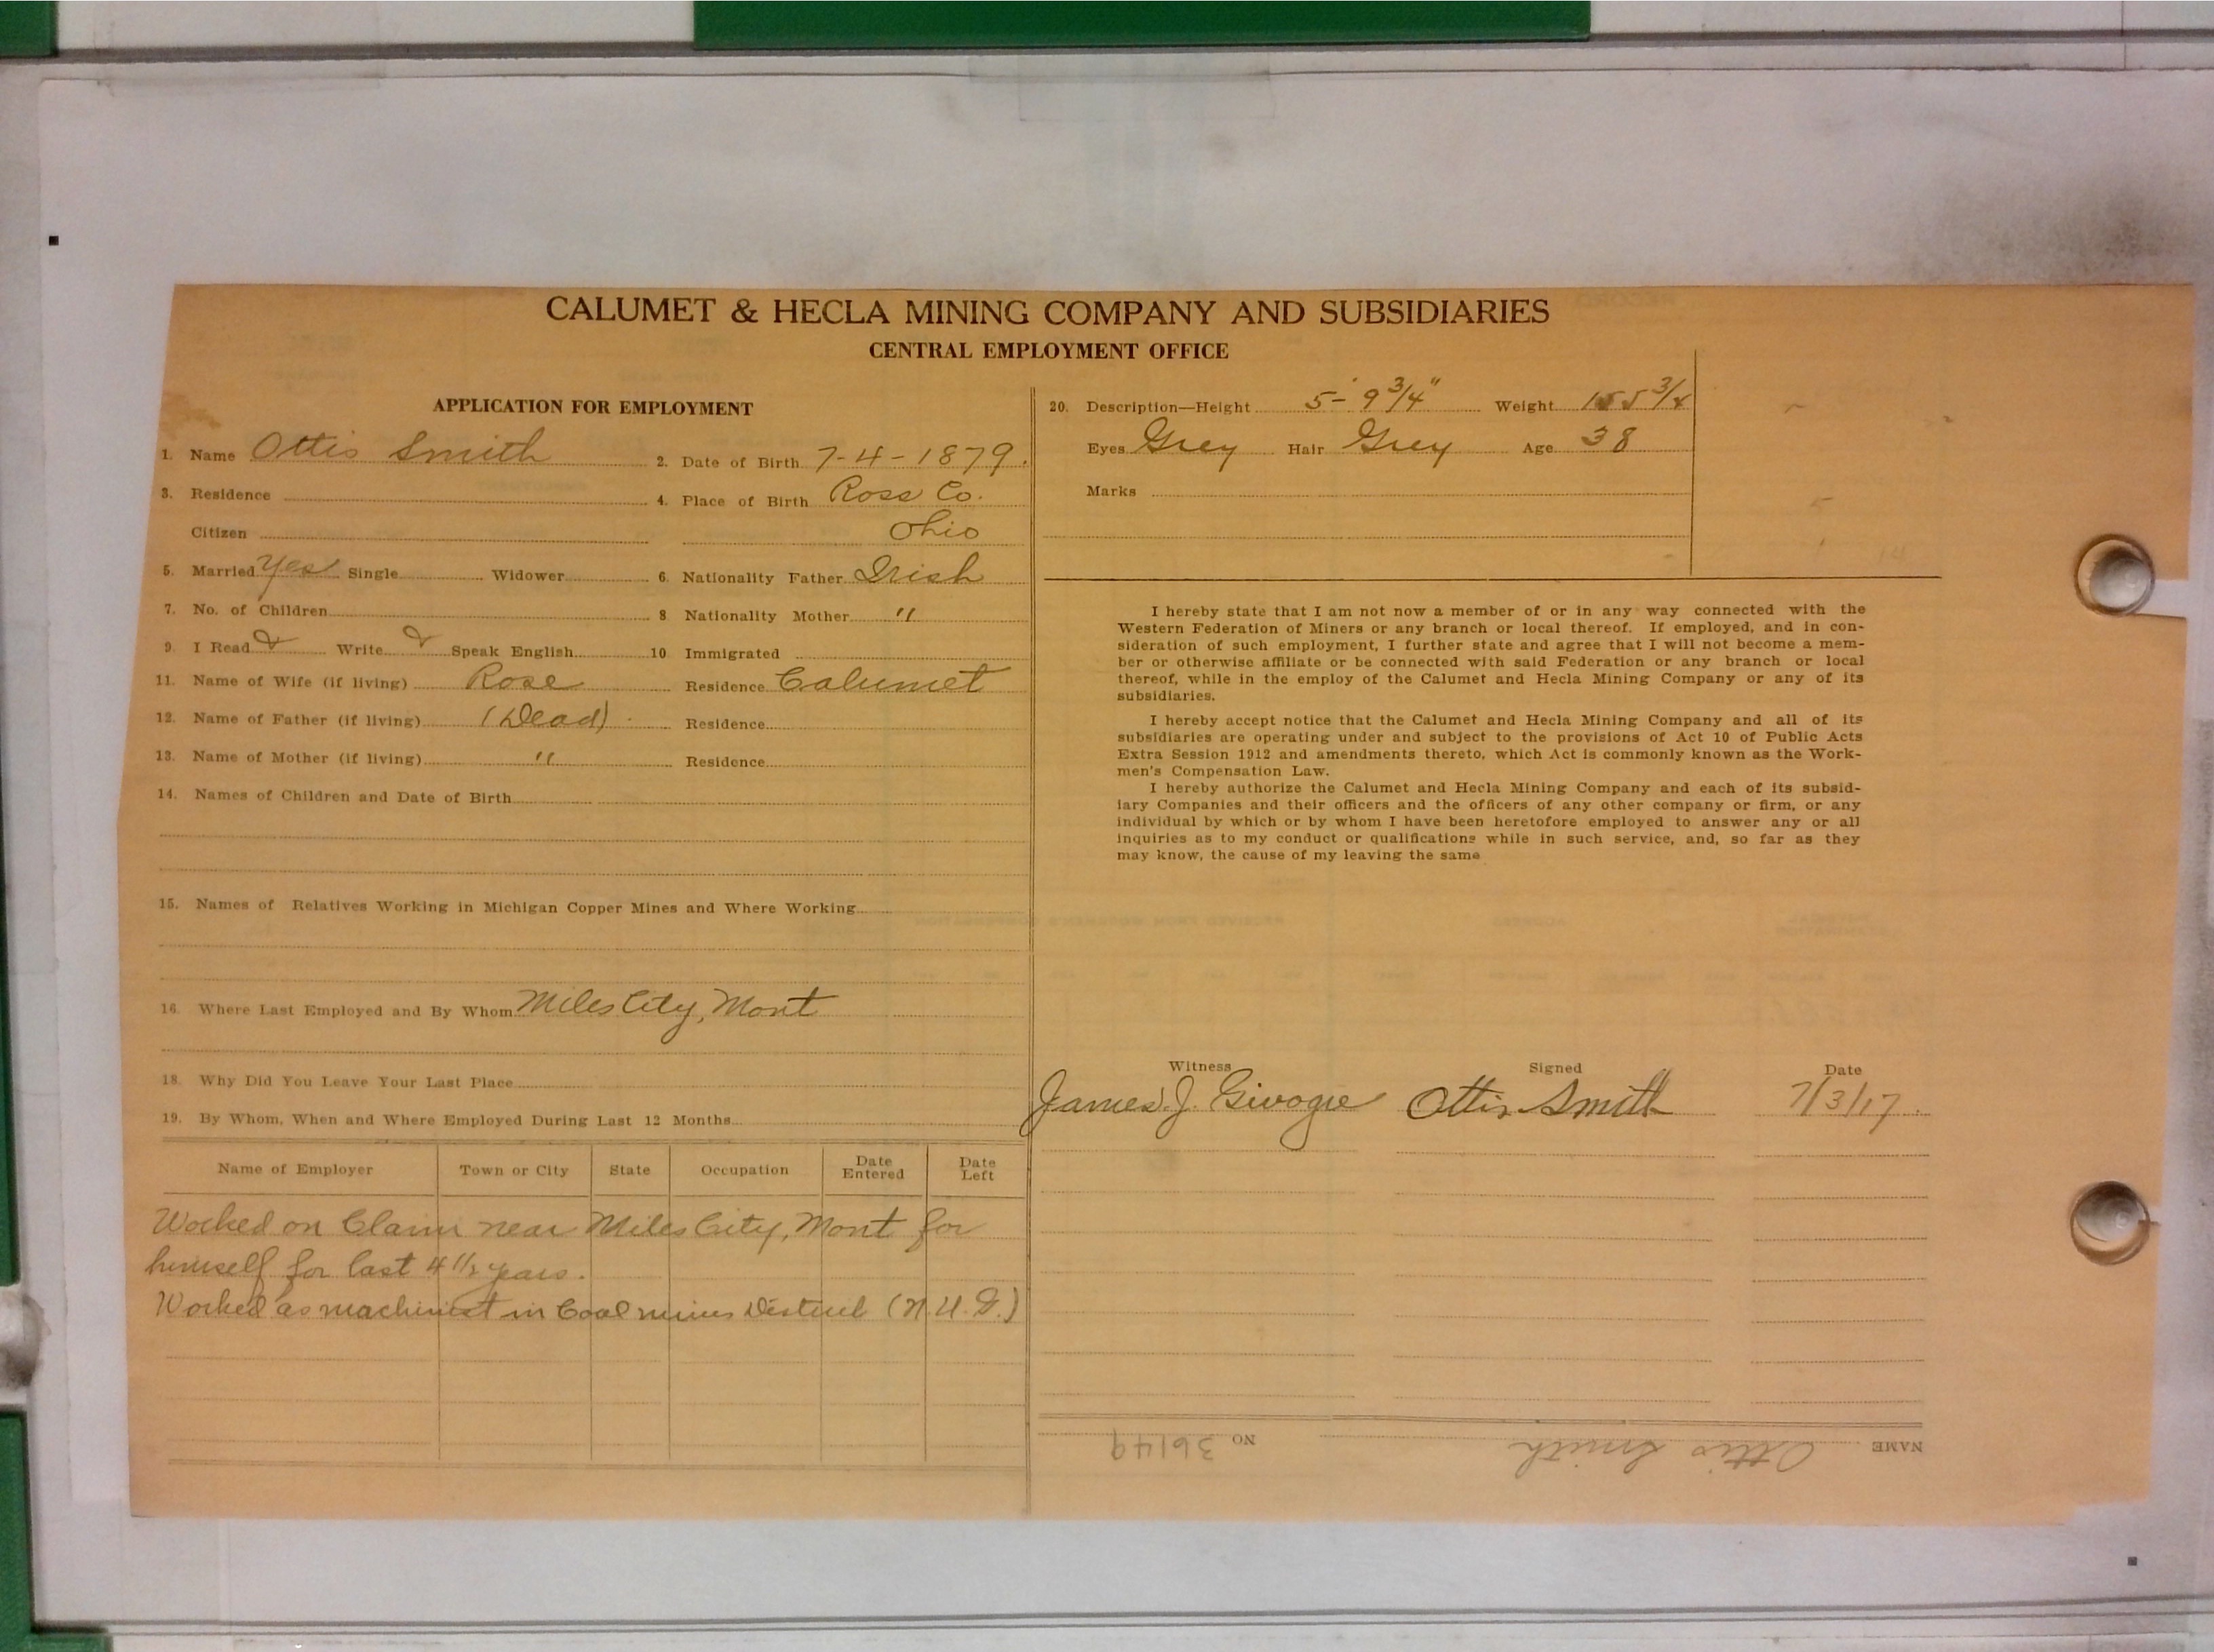 CALUMET & HECLA MINING COMPANY AND SUBSIDIARIES
CENTRAL EMPLOYMENT OFFICE
APPLICATION FOR EMPLOYMENT
1. Name Ottis Smith 2. Date of Birth 7-4-1879.
3. Residence 4. Place of Birth Ross Co.
Citizen Ohio
5. Married Yes Single Widower 6. Nationality Father Irish
7. No. of Children 8 Nationality Mother "
9. I Read Write Speak English 10 Immigrated
11. Name of Wife (if living) Rose Residence Calumet
12. Name of Father (if living) (Dead) Residence
13. Name of Mother (if living) " Residence
14. Names of Children and Date of Birth
15. Names of Relatives Working in Michigan Copper Mines and Where Working
16. Where Last Employed and By Whom Miles City, Mont
18. Why Did You Leave Your Last Place
19. By Whom, When and Where Employed During Last 12 Months
Name of Employer Town or City State Occupation Date Entered Date Left
Worked on Claim near Miles City, Mont for
himself for last 4 1/2 years.
Worked as machinist in Coal mines
20. Description—Height 5-' 9 3/4" Weight 155 3/4
Eyes Grey Hair Grey Age 38
Marks
I hereby state that I am not now a member of or in any way connected with the
Western Federation of Miners or any branch or local thereof. If employed, and in con-
sideration of such employment, I further state and agree that I will not become a mem-
ber or otherwise affiliate or be connected with said Federation or any branch or local
thereof, while in the employ of the Calumet and Hecla Mining Company or any of its
subsidiaries.
I hereby accept notice that the Calumet and Hecla Mining Company and all of its
subsidiaries are operating under and subject to the provisions of Act 10 of Public Acts
Extra Session 1912 and amendments thereto, which Act is commonly known as the Work-
men's Compensation Law.
I hereby authorize the Calumet and Hecla Mining Company and each of its subsid-
iary Companies and their officers and the officers of any other company or firm, or any
individual by which or by whom I have been heretofore employed to answer any or all
inquiries as to my conduct or qualifications while in such service, and, so far as they
may know, the cause of my leaving the same
Witness Signed Date
James J. Ottis Smith 7/3/17.
NAME Ottis Smith NO 36149